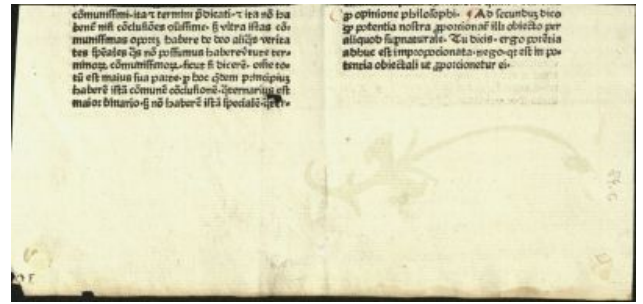 cōmunissimi·ita ⁊ termini p̄dicati·⁊ ita nō ha
berē nisi cōclusiōes cōissime· s̄ vltra istas cō
munissimas oportꝫ habere de deo aliq̄s verita
tes sp̄eales
minoꝝ cōmunissimoꝝ·sicut si dicerē· oīne to
tū est maius sua parte· p hoc q̄dem principiuꝫ
haberē istā cōmunē cōclusionē·q̄ternarius est
maior binario·s̄ nō haberē istā specialē·q̄ter-
ꝙ opinione philosophi· Ad secunduꝫ dico
ꝙ potentia nostra ꝓporcionat̄ illi obiecto per
aliquod supnaturale· Tu dicis· ergo potētia
adhuc est improporcionata·nego·qꝛ est in po-
tentia obiectali ut ꝓporcionetur ei·